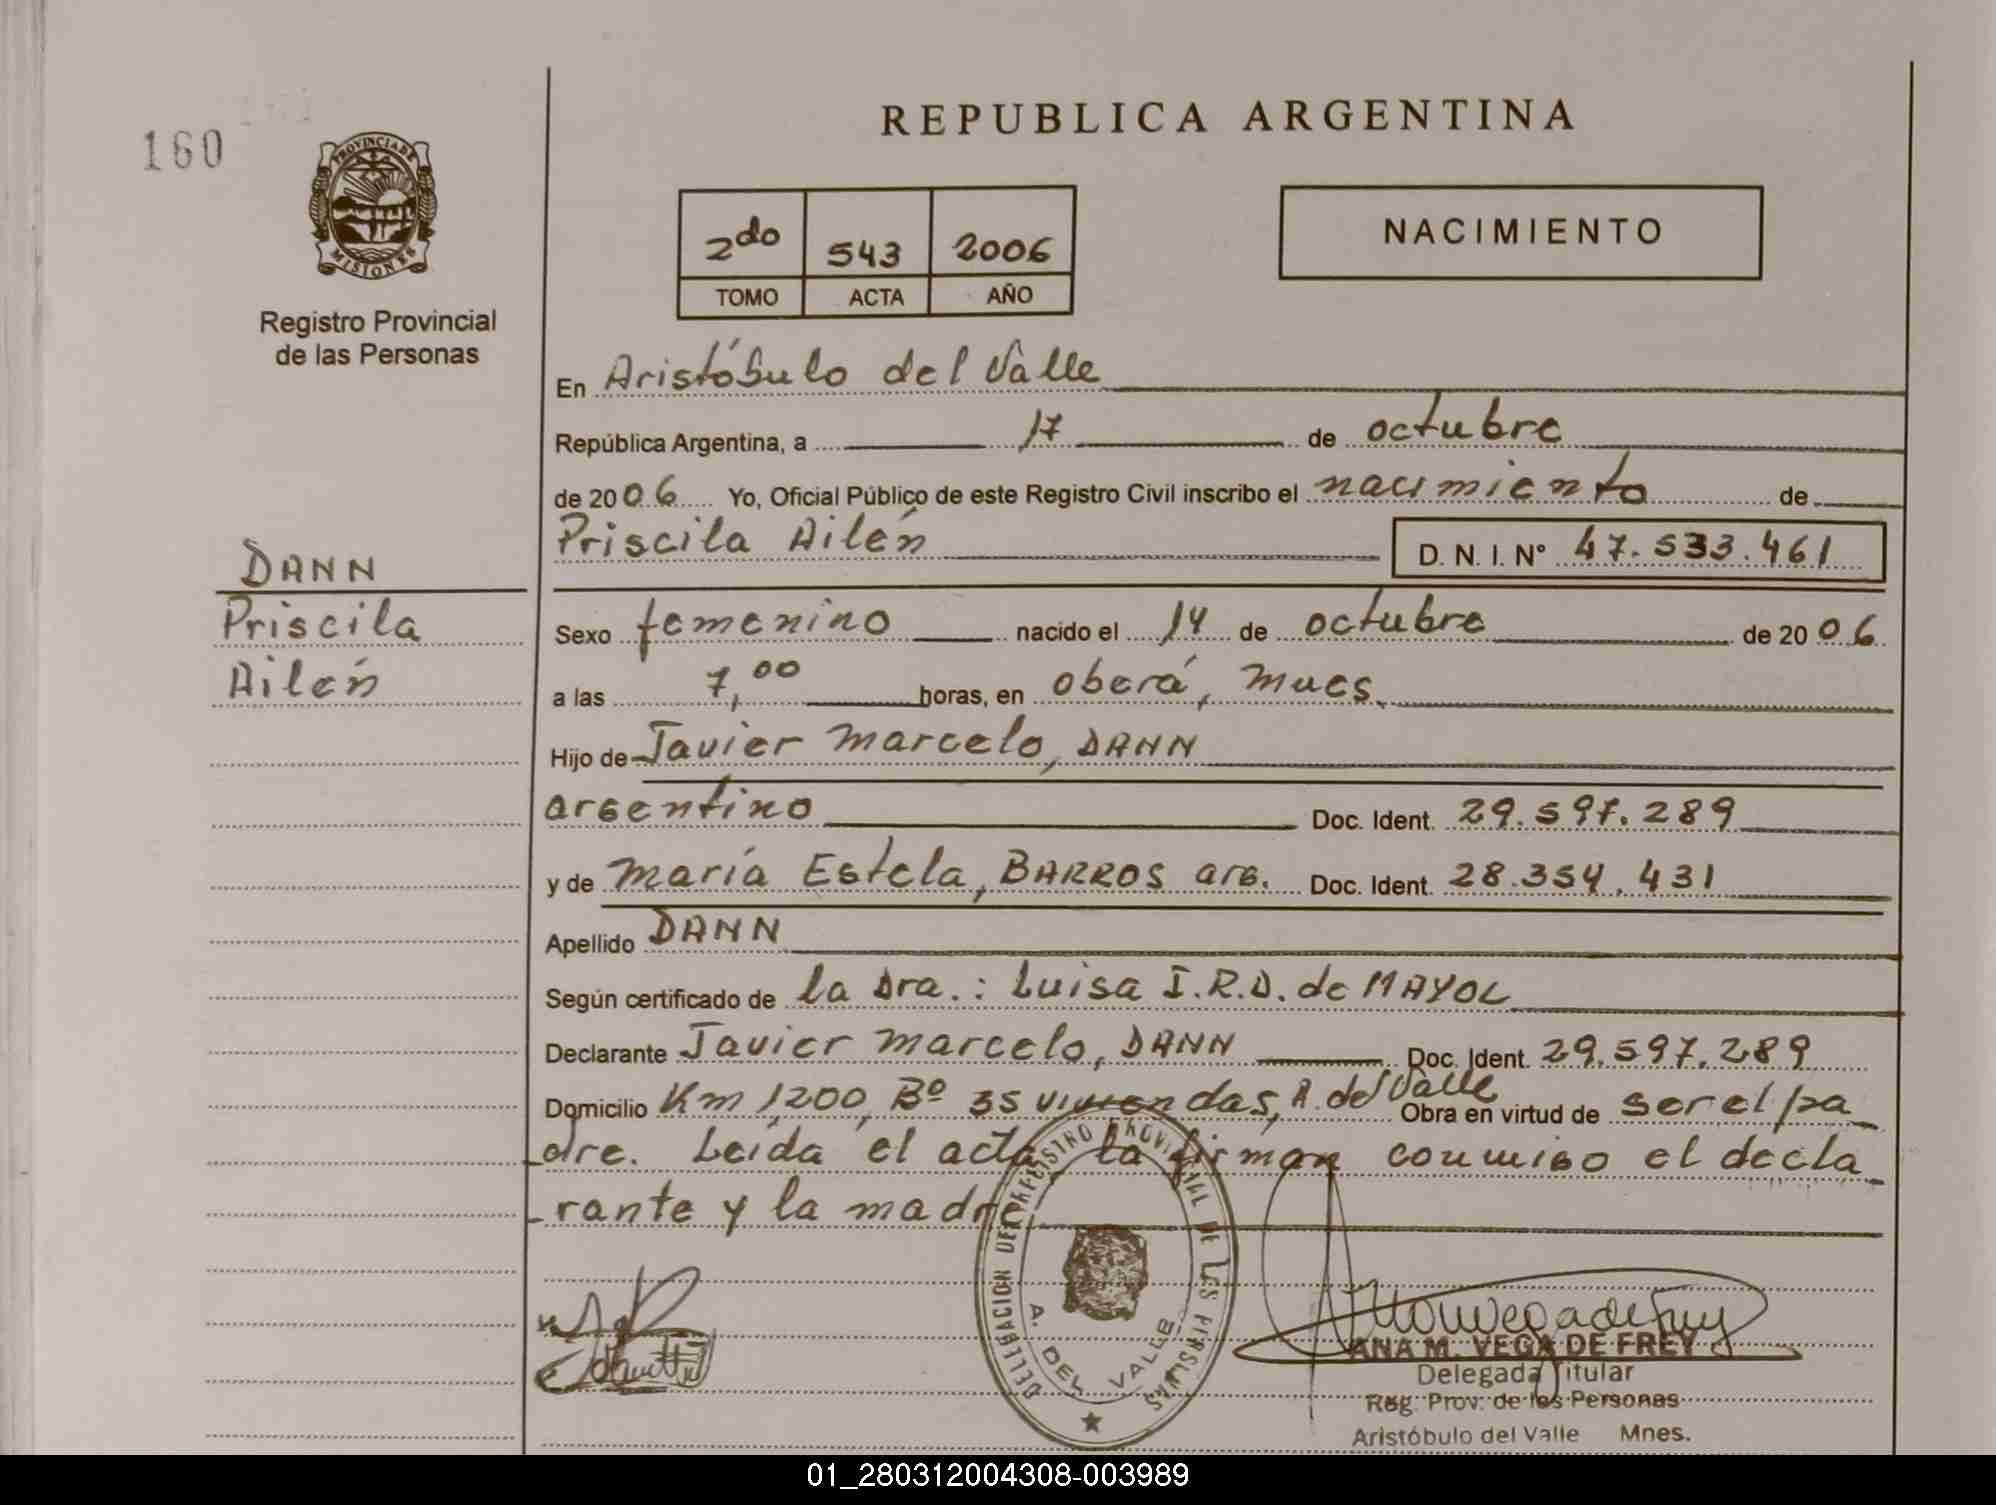 160
PROVINCIA DE
MISIONES
Registro Provincial
de las Personas
REPUBLICA ARGENTINA
2do 543 2006
TOMO ACTA AÑO
NACIMIENTO
En Aristóbulo del Valle
República Argentina, a 17 de octubre
de 2006 Yo, Oficial Público de este Registro Civil inscribo el nacimiento de
Priscila Ailén D. N. I. N° 47.533.461
DANN
Priscila
Ailén
Sexo femenino nacido el 14 de octubre de 2006
a las 7,00 horas, en Oberá, Mnes.
Hijo de Javier Marcelo, DANN
argentino Doc. Ident. 29.597.289
y de María Estela, BARROS arg. Doc. Ident. 28.354.431
Apellido DANN
Según certificado de la Dra.: Luisa I.R.D. de MAYOL
Declarante Javier Marcelo, DANN Doc. Ident. 29.597.289
Domicilio Km 1200, Bº 35 viviendas, A. del Valle Obra en virtud de ser el pa
dre. Leída el acta, la firman conmigo el decla
rante y la madre
DELEGACION DEL REGISTRO PROVINCIAL DE LAS PERSONAS
A. DEL VALLE
ANA M. VEGA DE FREY
Delegada Titular
Reg. Prov. de las Personas
Aristóbulo del Valle Mnes.
01_280312004308-003989